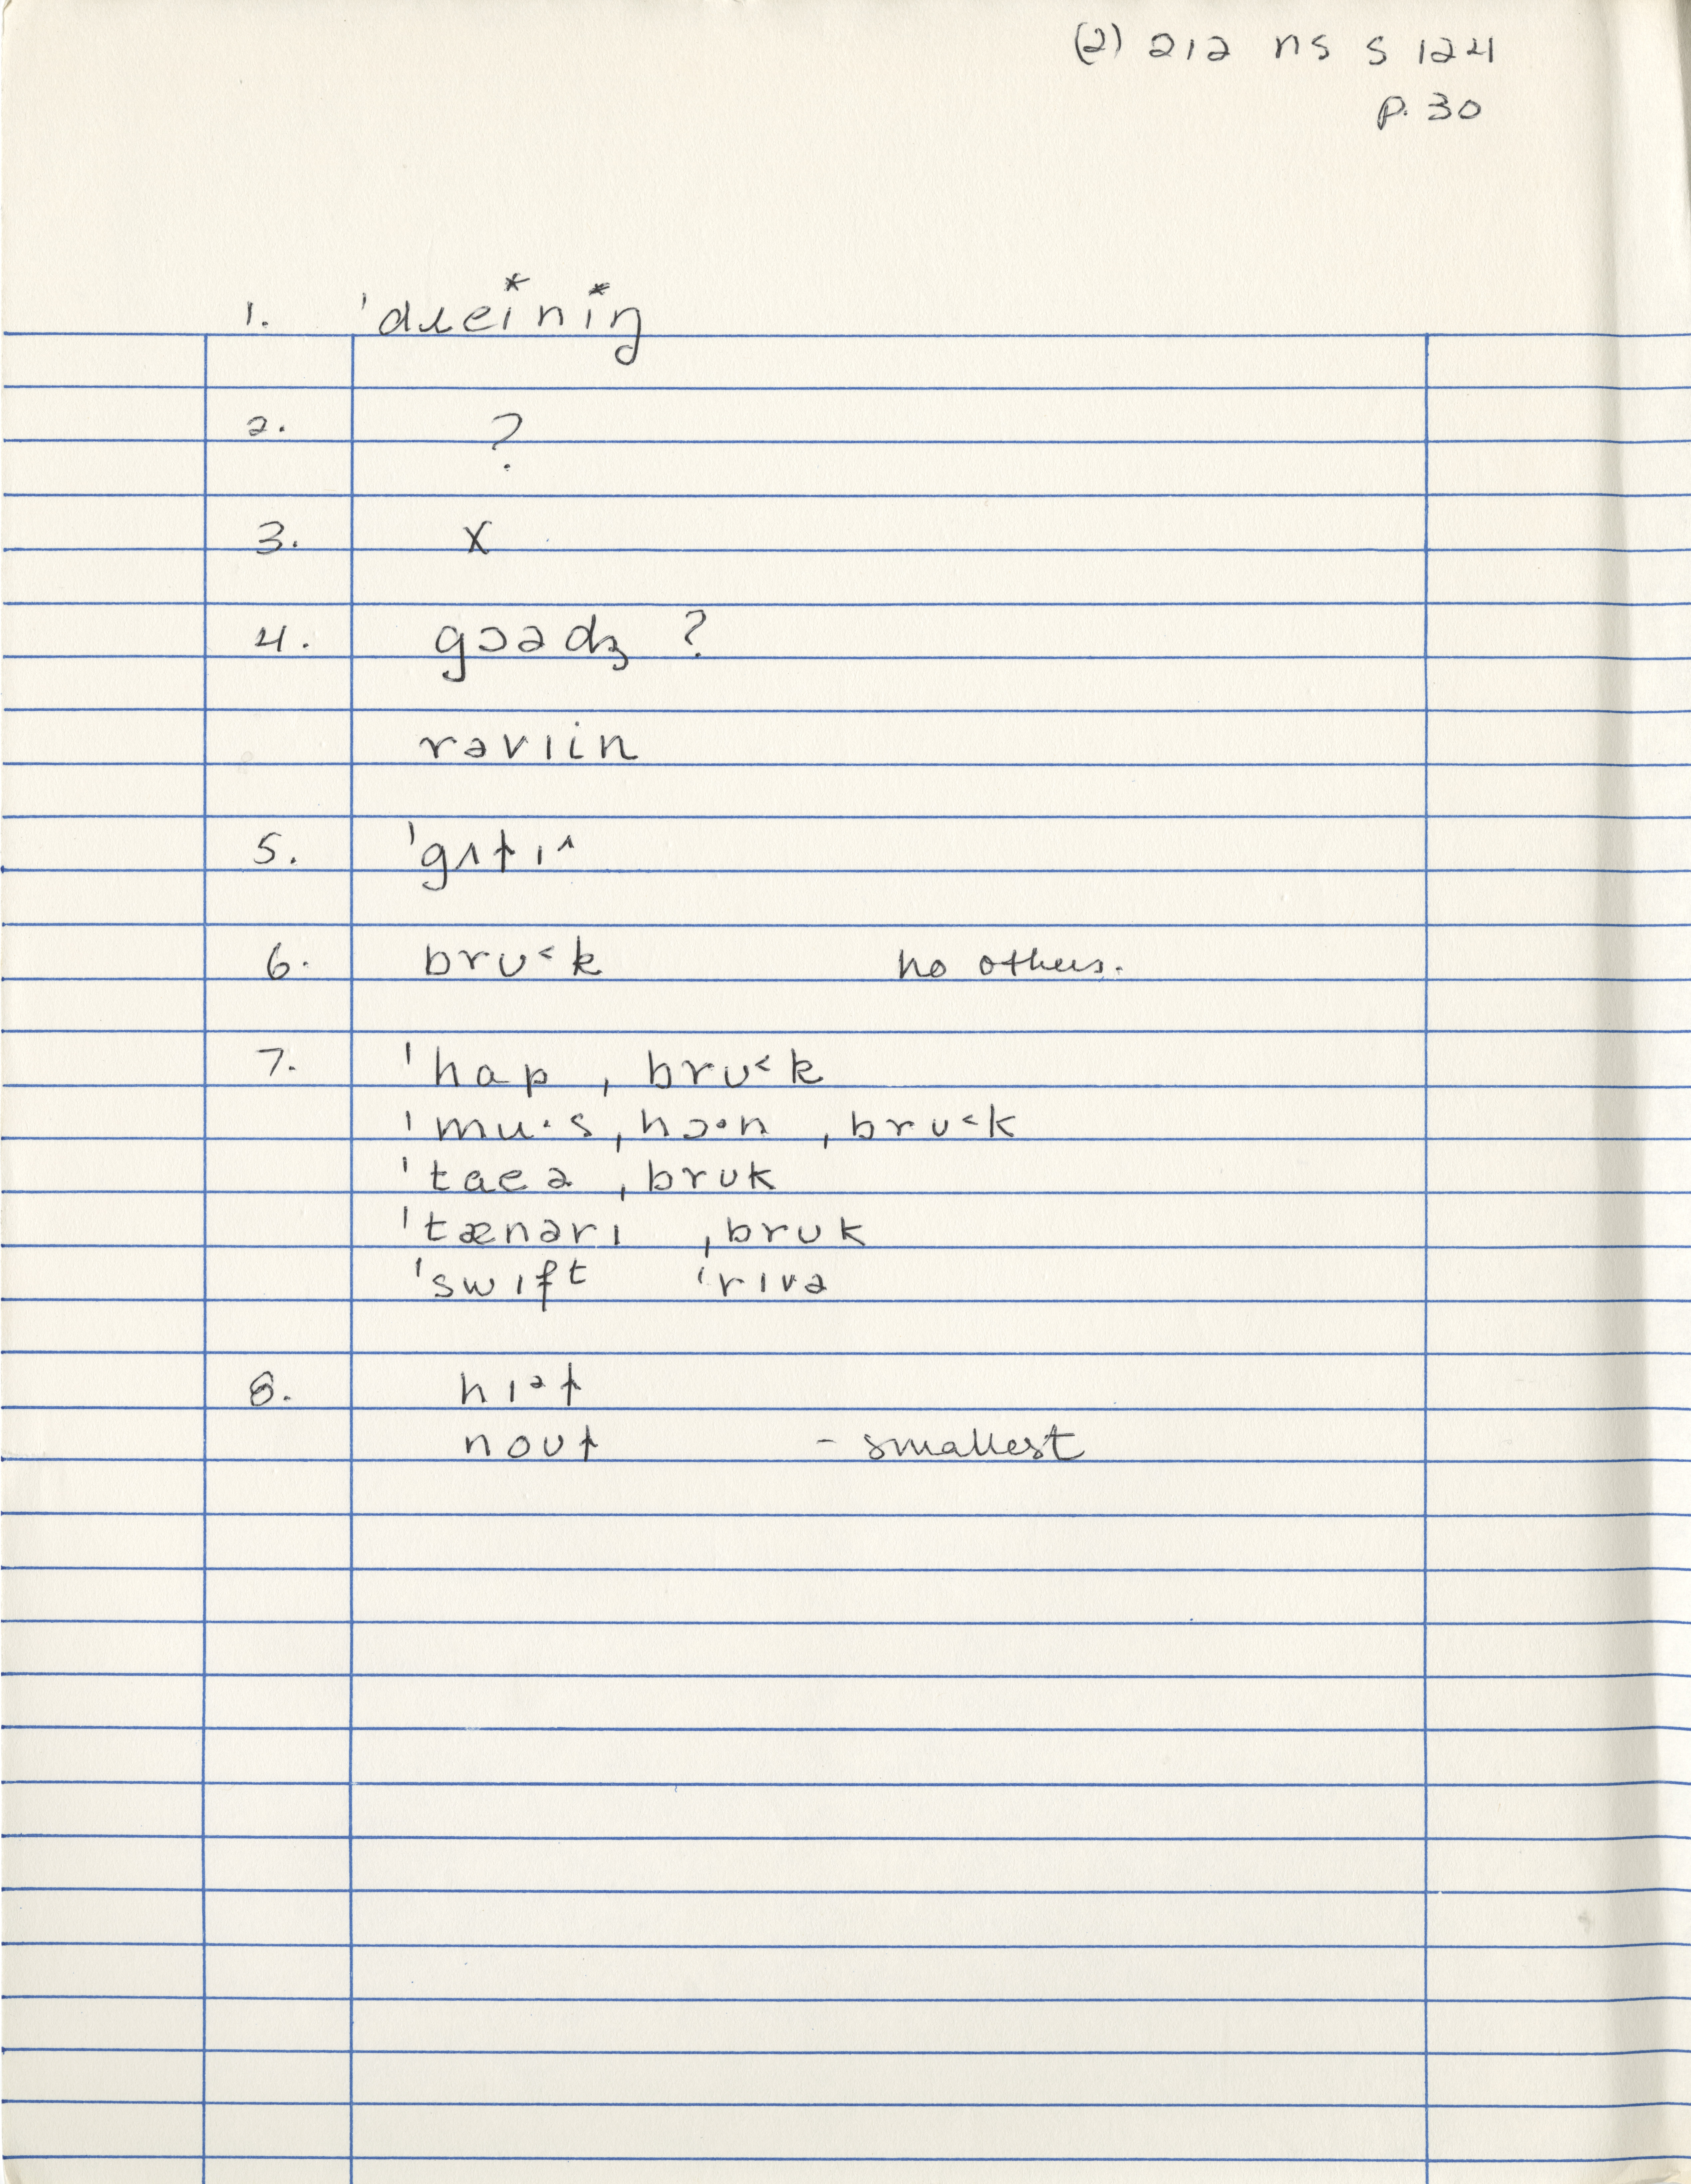 (2) 212 ns s 124
p. 30
1. ˈdɹeiniŋ
2. ?
3. x
4. gɔədʒ ?
rəviin
5. ˈgʌt̬ɪ^
6. brʊ˂k no others.
7. ˈhap ˌbrʊ˂k
ˈmu·s ˌhɔ·n ˌbrʊ˂k
ˈtaeə ˌbrʊk
ˈtænərɪ ˌbrʊk
ˈswɪft ˈrɪvə
8. hɪᵊɫ
noʊɫ - smallest